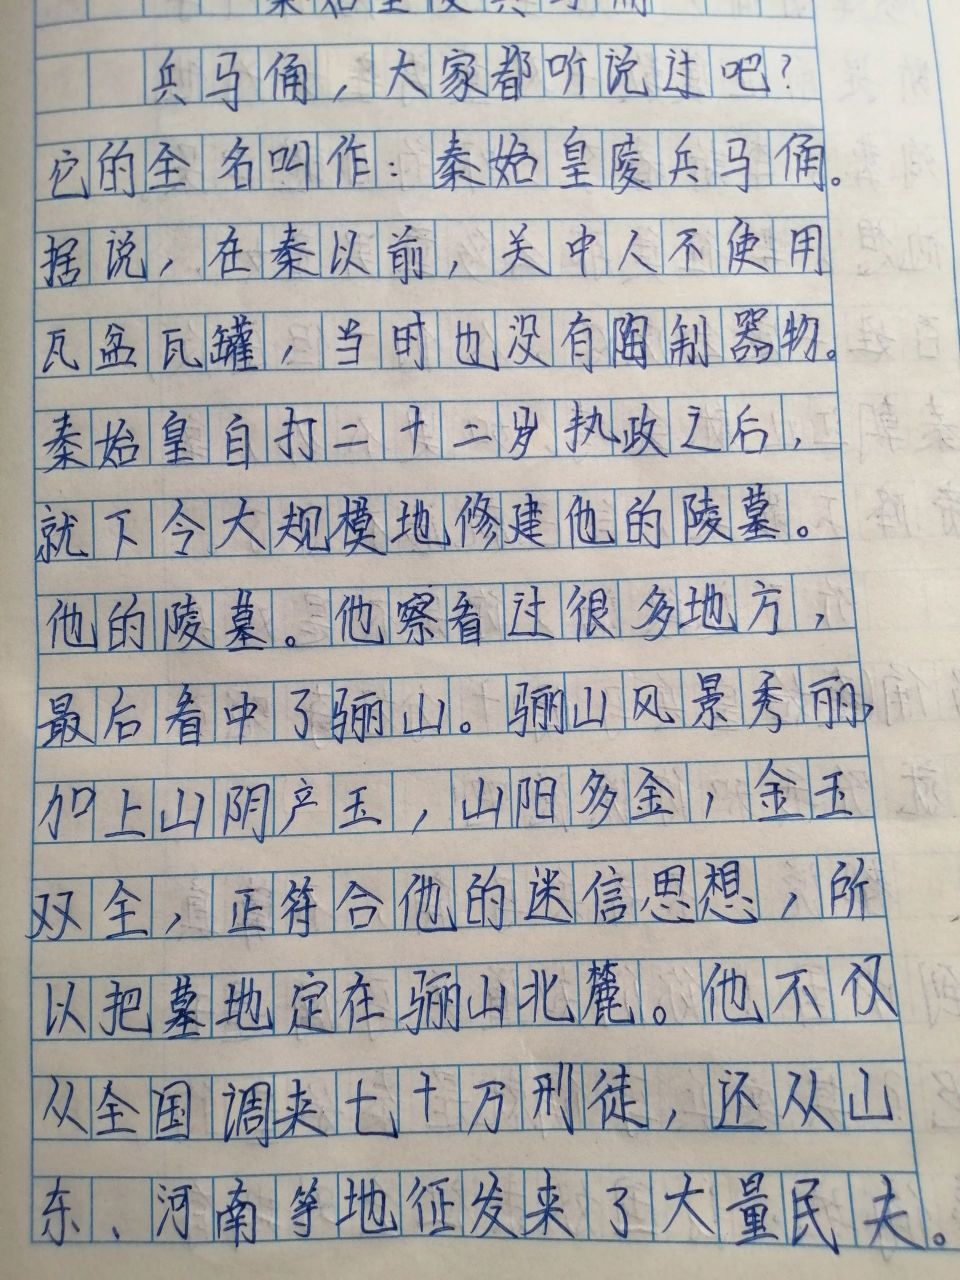 秦始皇陵兵马俑
兵马俑，大家都听说过吧？
它的全名叫作：秦始皇陵兵马俑。
据说，在秦以前，关中人不使用
瓦盆瓦罐，当时也没有陶制器物。
秦始皇自打二十二岁执政之后，
就下令大规模地修建他的陵墓。
他的陵墓。他察看过很多地方，
最后看中了骊山。骊山风景秀丽，
加上山阴产玉，山阳多金，金玉
双全，正符合他的迷信思想，所
以把墓地定在骊山北麓。他不仅
从全国调来七十万刑徒，还从山
东、河南等地征发来了大量民夫。